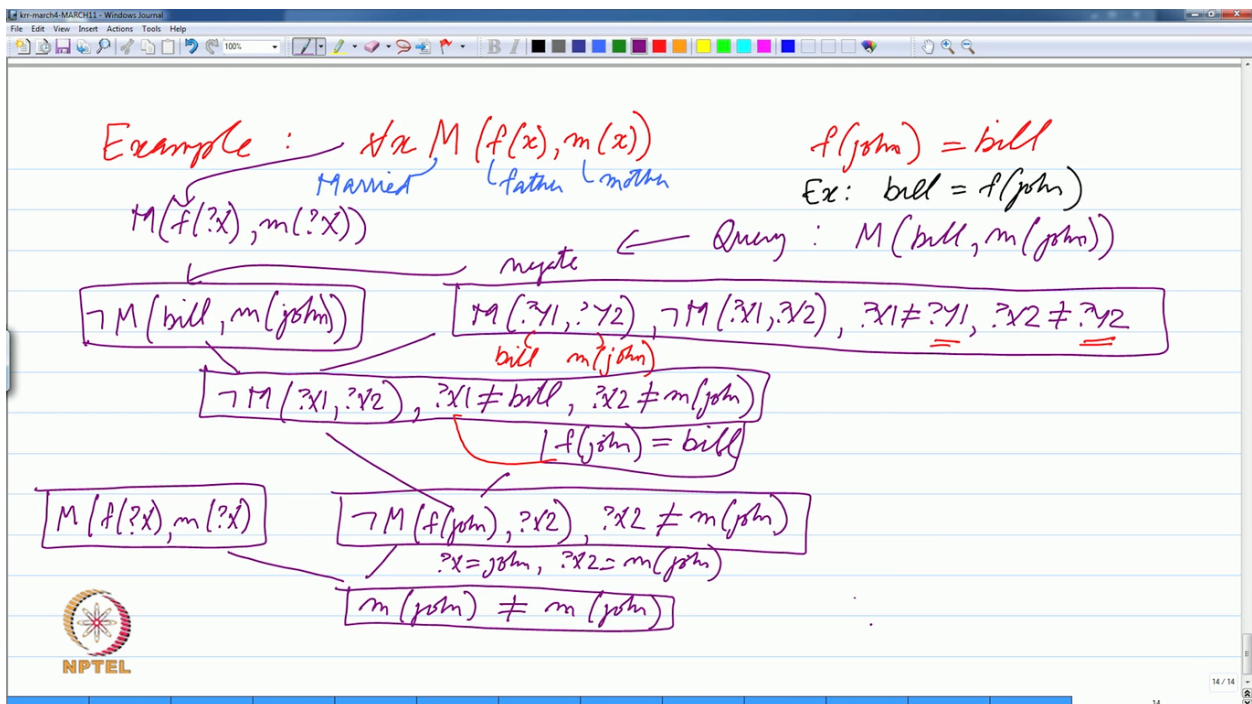 krr-march4-MARCH11 - Windows Journal
File Edit View Insert Actions Tools Help
100%
B I
Example : ∀x M (f(x), m(x)) f(john) = bill
Married father mother Ex: bill = f(john)
M(f(?x), m(?x)) Query : M(bill, m(john))
negate
¬M(bill, m(john)) M(?Y1, ?Y2), ¬M(?X1, ?X2), ?X1≠?Y1, ?X2≠?Y2
bill m(john)
¬M(?X1, ?X2), ?X1≠bill, ?X2≠m(john)
f(john) = bill
M(f(?x), m(?x) ¬M(f(john), ?X2), ?X2≠m(john)
?x=john, ?X2=m(john)
m(john) ≠ m(john)
NPTEL
14 / 14
14